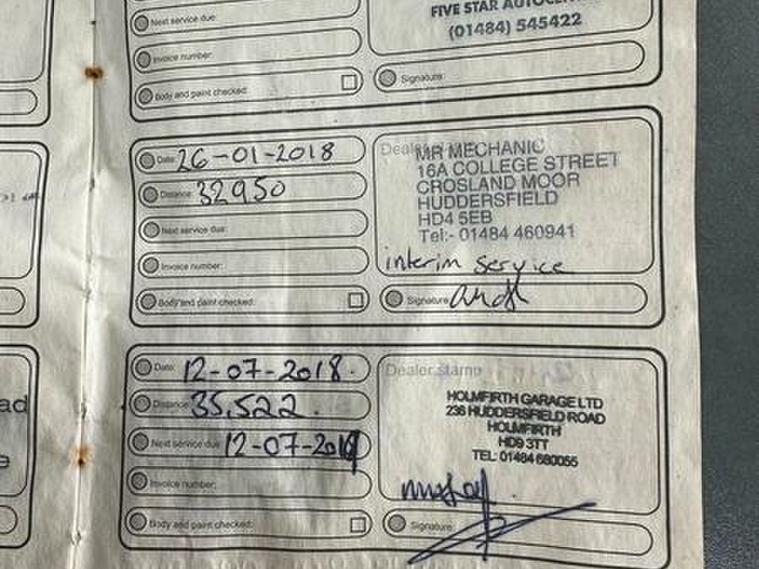 FIVE STAR
(01484) 545422
Next service due:
Invoice number:
Body and paint checked:
Signature:
Date: 26-01-2018
Distance: 32950
Next service due:
Invoice number:
Body and paint checked:
MR MECHANIC
16A COLLEGE STREET
CROSLAND MOOR
HUDDERSFIELD
HD4 5EB
Tel:- 01484 460941
interim service
Signature:
Date: 12-07-2018.
Distance: 35,522.
Next service due: 12-07-2019
Invoice number:
Body and paint checked:
Dealer stamp
HOLMFIRTH GARAGE LTD
236 HUDDERSFIELD ROAD
HOLMFIRTH
HD9 3TT
TEL: 01484 680055
Signature: